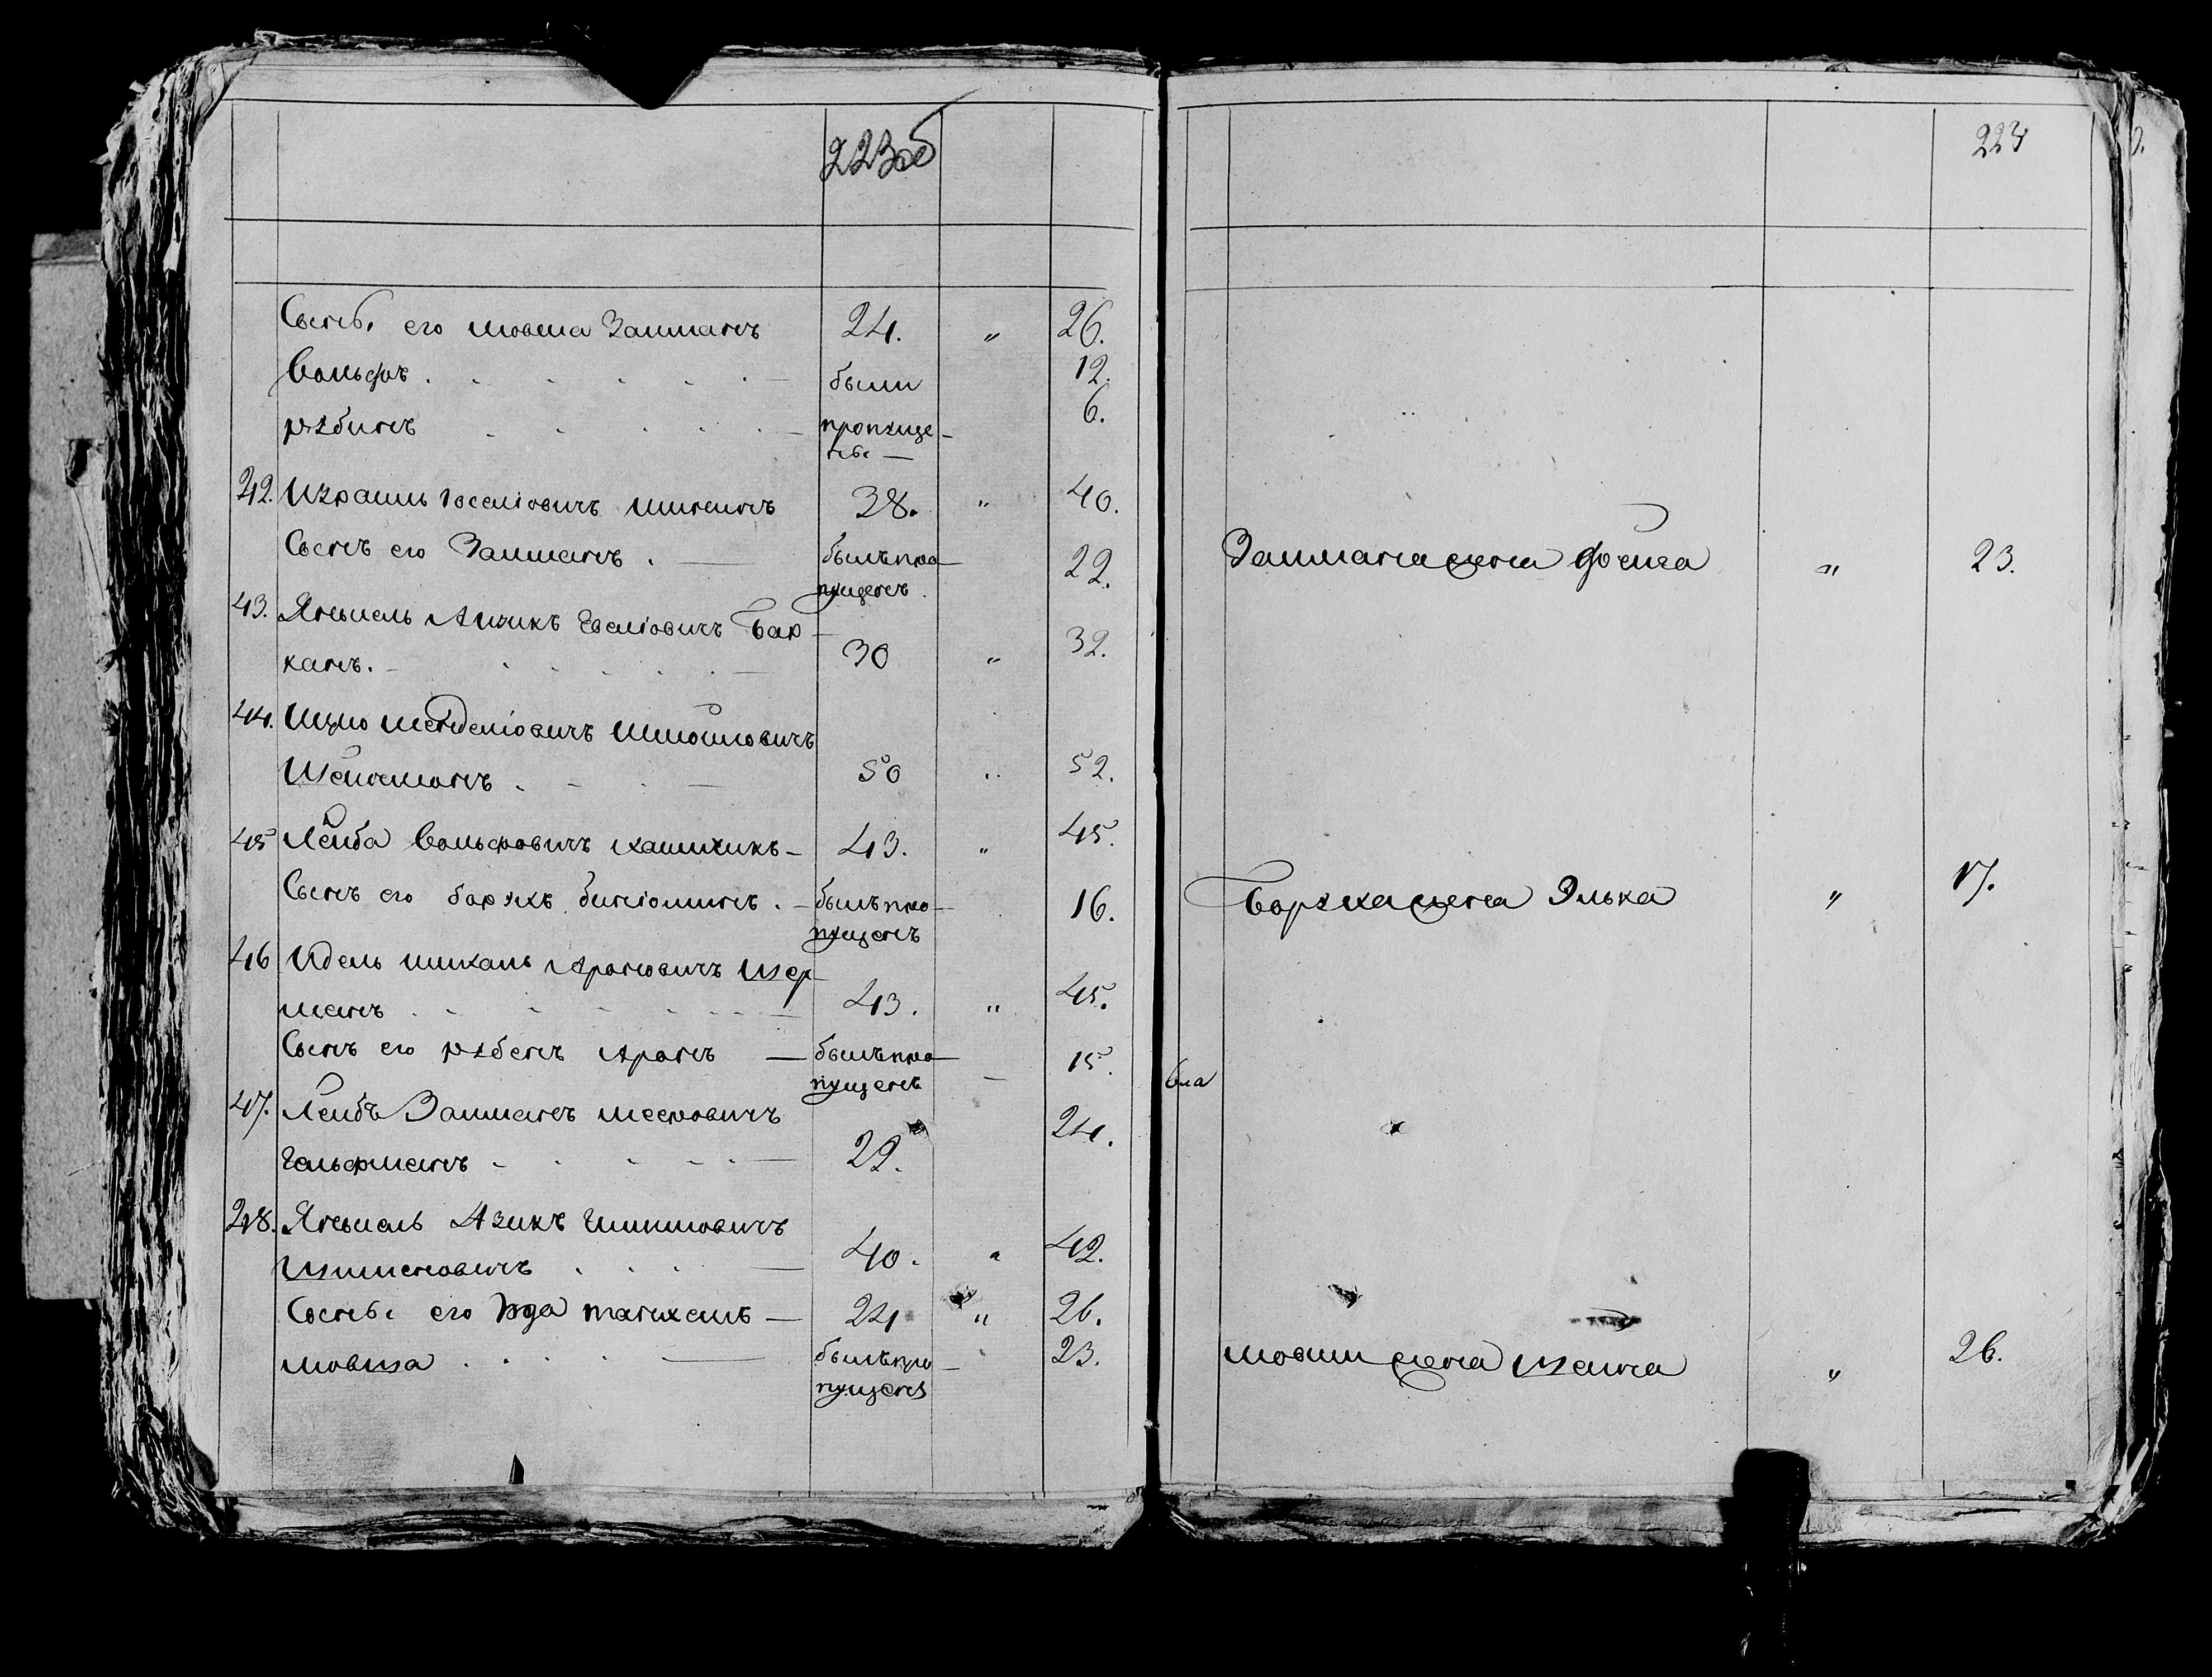 223об
Сынъ его Мовша Залманъ 24. " 26.
Вольфъ были 12.
рубинъ пропуще- 6.
ны
42. Израиль Іоселіовичъ 38. " 40.
Сынъ его Залманъ былъ про-
пущенъ 22.
43. Янкель Айзикъ Іоселіовичъ Бар-
канъ. 30 " 32.
44. Ицко Менделіовичъ Шмойловичъ
Шейнеманъ 50 " 52.
45 Лейба Вольфовичъ 43. " 45.
Сынъ его Борухъ Биніоминъ былъ про-
пущенъ 16.
46 Идель Михаль Ароновичъ Шер-
манъ 43. " 45.
Сынъ его рубенъ Аронъ былъ про-
пущенъ 15.
47. Лейбъ Залманъ Мееровичъ
Гельфманъ 22. 24.
48. Янкель Азикъ
40. " 42.
Сыны его Іода 24 " 26.
Мовша былъ про- 23.
пущенъ
223
Залмана жена Фейга " 23.
Боруха жена Элька " 17.
Мовши жена Шейна " 26.